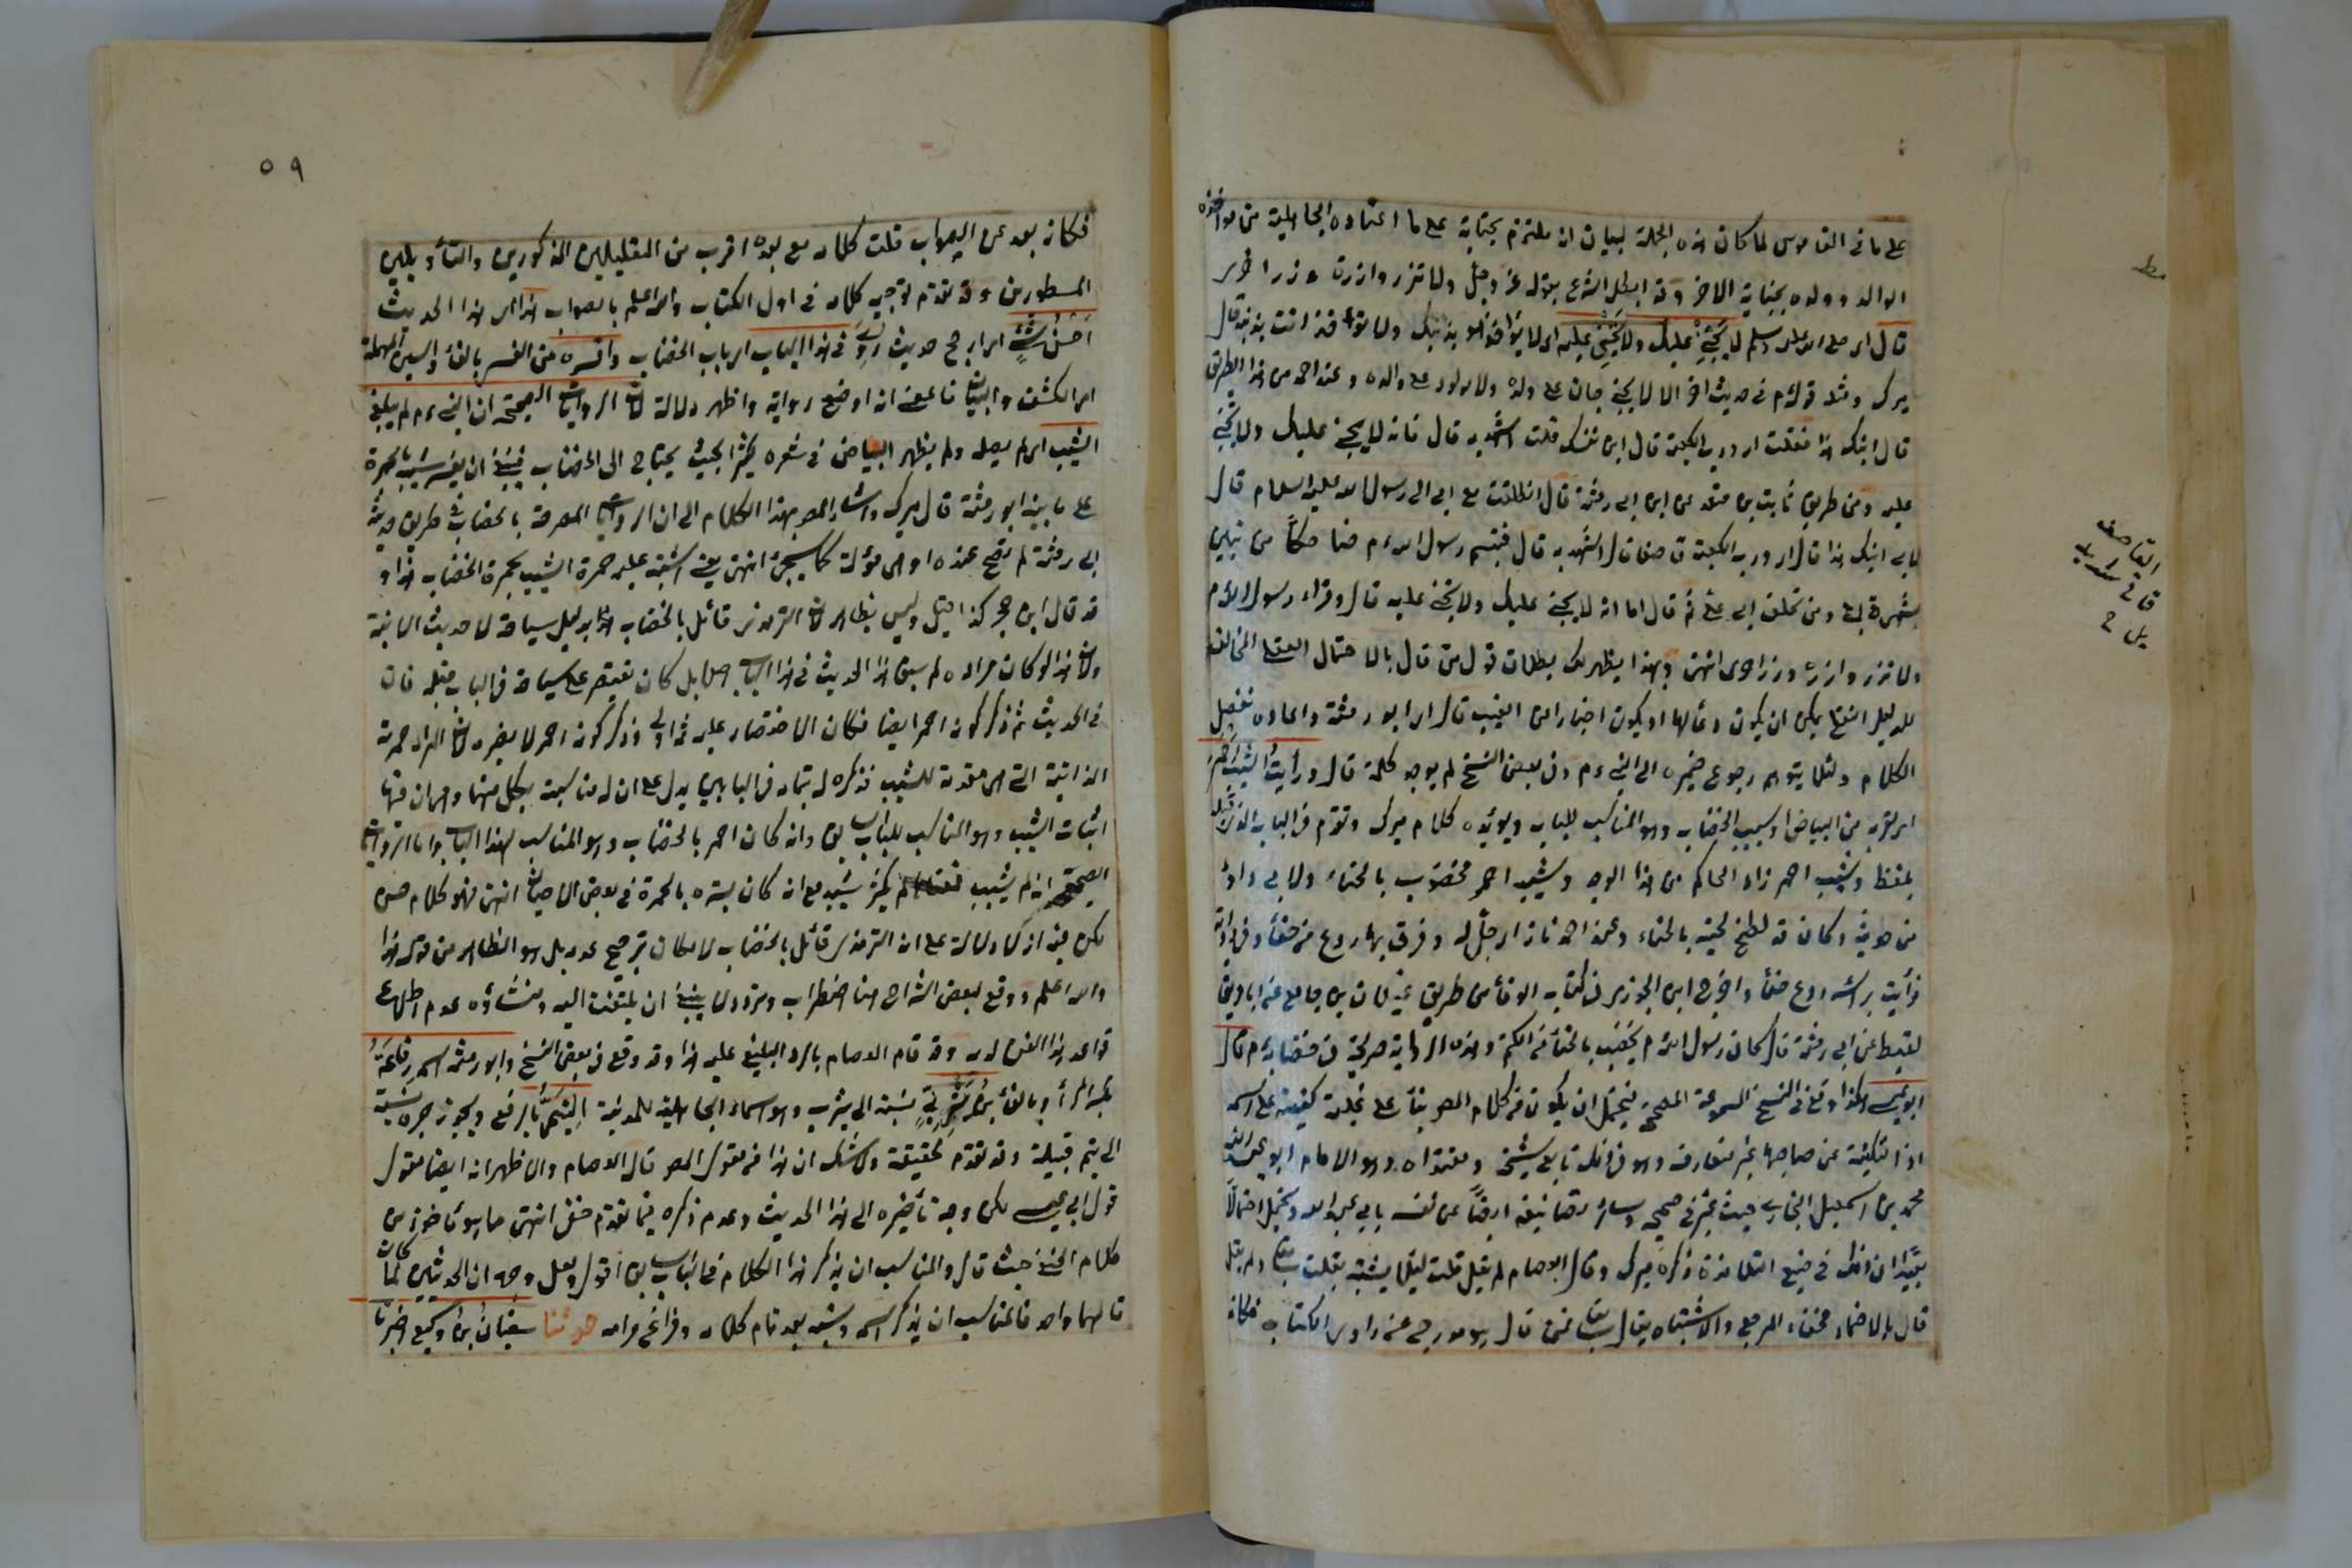 على ما في القاموس لما كان هذه الجملة لبيان انه ملتزم بجناية على ما اعتاده الجاهلية من مؤاخذة
الوالد وولده بجناية الاخر وقد ابطل الشرع بقوله عز وجل ولا تزر وازرة وزر اخرى
قال اى صلى الله عليه وسلم لا يجنى عليك ولا تجنى عليه اى لا يؤاخذ هو بذنبك ولا تؤاخذ انت بذنبه قال
ميرك ومثله قوله م في حديث اخر الا لا يجنى جان على ولده ولا مولود على والده وعند احمد من هذا الطريق
قال ابنك هذا فقلت اى ورب الكعبة قال ابن نفسك قلت اشهد به قال فانه لا يجنى عليك ولا تجنى
عليه ومن طريق ثابت بن منقذ عن ابى رمثة قال انطلقت مع ابى الى رسول الله عليه السلام قال
لابى ابنك هذا قال اى ورب الكعبة قال حقا قال اشهد به قال فتبسم رسول الله م ضاحكا من تبيين
شهرة ابى ومن حلف ابى على ثم قال اما انه لا يجنى عليك ولا تجنى عليه قال وقراء رسول الله م
ولا تزر وازرة وزر اخرى انتهى وبهذا يظهر لك بطلان قول من قال بالاحتمال العقلى المخالف
للدليل النقلى يمكن ان يكون دعا لهما او يكون اخبارا عن الغيب قال اى ابو رمثة واعاده لفصل
الكلام ولئلا يتوهم رجوع ضميره الى النبى م وفى بعض النسخ لم يوجد كلمة قال ورأيت الشيب احمر
اى لقربه من البياض او بسبب الخضاب وهو المناسب للباب ويؤيده كلام ميرك وتقدم في الباب الذى قبله
بلفظ وشيبه احمر زاد الحاكم من هذا الوجه وشيبه احمر مخضوب بالحناء ولابى داود
من حديثه وكان قد لطخ لحيته بالحناء وعند احمد فاذا رجل له وفرة بها ردع من حناء وفى رواية
فرأيت برأسه ردع حناء واخرج ابن الجوزى فى كتاب الوفا من طريق غيلان بن جامع عن اياد بن
لقيط عن ابى رمثة قال كان رسول الله م يخضب بالحناء والكتم وهذه الرواية صريحة فى خضابه م قال
ابو عيسى هكذا وقع فى النسخ المسموعة المصححة فيحتمل ان يكون من كلام المص بناء على غلبة كنيته على اسمه
اذ التكنية عن صاحبها غير متعارفة وهو في ذلك تابع شيخه ومقتداه وهو الامام ابو عبد الله
محمد بن اسمعيل البخارى حيث عبر في صحيحه وسائر تصانيفه ايضا عن نفسه بابى عبد الله ويحتمل احتمالا
بعيدا ان ذلك من صنيع التلامذة ذكره ميرك وقال العصام لم يقل قلت لئلا يشتبه بقلت سابقا ولم يقل
قال بالاضمار لخفاء المرجع والاشتباه بقال سابقا فمن قال هو مدرج من راوى الكتاب فكانه
القاصف
مط
٥٩
فكانه بعد عن الصواب قلت كلامه مع بعده اقرب من التعليلين المذكورين والتأويلين
المسطورين وقد تقدم توجيه كلامه في اول الكتاب والله اعلم بالصواب هذا اى هذا الحديث
احسن شئ اى ارجح حديث روى في هذا الباب اى باب الخضاب وافسره من الفسر بالفاء والسين المهملة
اى الكشف والبيان فالمعنى انه اوضح رواية واظهر دلالة لان الروايات الصحيحة ان النبى م لم يبلغ
الشيب اى لم يصله ولم يظهر البياض في شعره كثيرا بحيث يحتاج الى الخضاب فينبغى ان يفسر شيبه بالحمرة
على ما بينه ابو رمثة قال ميرك واشار المص بهذا الكلام الى ان الروايات المصرحة بالخضاب في طريق حديث
ابى رمثة لم تصح عنده او هى مؤولة كما سيجئ انتهى يعنى اشتبه عليه حمرة الشيب بحمرة الخضاب هذا و
قد قال ابن حجر كذا قيل وليس بظاهر لان الترمذى قائل بالخضاب بدليل سياقه لاحاديث الاتية
ولان هذا لو كان مراده لم يسق هذا الحديث في هذا الباب اصلا بل كان يقتصر على سياقه في الباب قبله فان
في الحديث ثم ذكر كونه احمر ايضا فكان الاقتصار عليه ثم اولى وذكر كونه احمر لا يضره لان المراد حمرته
الذاتية التى هى مقدمة للشيب فذكره له بتمامه في البابين يدل على ان له مناسبة بكل منهما وهى ان فيها
اثبات الشيب وهو المناسب للباب السابق وانه كان احمر بالخضاب وهو المناسب لهذا الباب واما الروايات
الصحيحة انه لم يشيب فمعناها لم يكثر شيبه مع انه كان يستره بالحمرة في بعض الاحيان انتهى فهو كلام حسن
لكن فيه ان لا دلالة على ان الترمذى قائل بالخضاب لامكان ترجيح عدمه بل هو الظاهر من قوله هذا
والله اعلم ووقع لبعض الشراح هنا اضطراب وتردد لا ينبغى ان يلتفت اليه ومنشاؤه عدم اطلاع
قواعد هذا الفن لديه وقد قام العصام بالرد البليغ عليه هذا وقد وقع في بعض النسخ وابو رمثة اسمه رفاعة
بكسر الراء وبالفاء بن يثربى نسبة الى يثرب وهو اسم الجاهلية للمدينة التيمى بالرفع ويجوز جره نسبة
الى تيم قبيلة وقد تقدم تحقيقه ولا شك ان هذا من مقول المص قال العصام والاظهر انه ايضا مقول
قول ابى عيسى لكن وجه تأخيره الى هذا الحديث وعدم ذكره فيما تقدم خفى انتهى ما هو مأخوذ من
كلام الحنفى حيث قال والمناسب ان يذكر هذا الكلام في الباب السابق اقول ولعل وجهه ان الحديثين لما كان
مآلهما واحد فالمناسب ان يذكر اسمه ونسبه بعد تمام كلامه وفراغ مرامه حدثنا سفيان بن وكيع اخبرنا